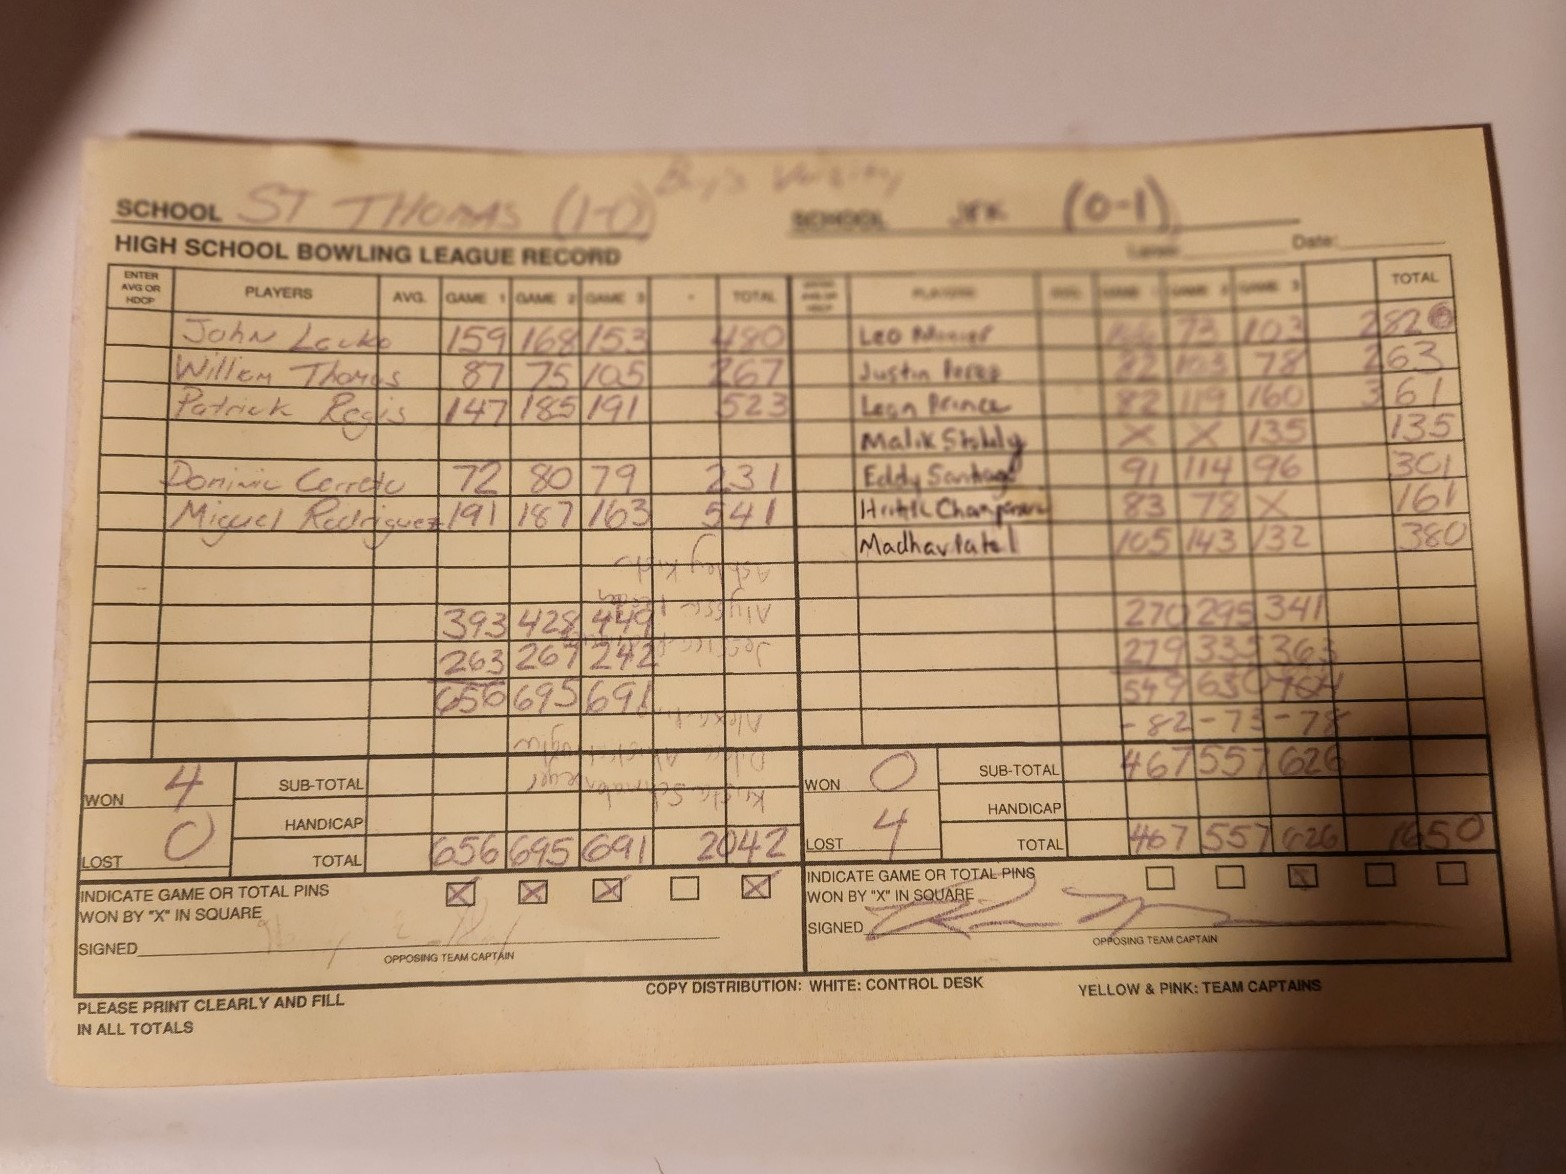 Boy's Varsity
SCHOOL ST THOMAS (1-0) SCHOOL JFK (0-1)
HIGH SCHOOL BOWLING LEAGUE RECORD Lanes: Date:
ENTER AVG OR HDCP PLAYERS AVG. GAME 1 GAME 2 GAME 3 TOTAL ENTER AVG OR HDCP PLAYERS AVG. GAME 1 GAME 2 GAME 3 TOTAL
John 159 168 153 480 Leo 106 73 103 282
William Thomas 87 75 105 267 Justin Perez 82 103 78 263
Patrick Regis 147 185 191 523 Lean Prince 82 119 160 361
Malik X X 135 135
Dominic Cerreto 72 80 79 231 Eddy Santiago 91 114 96 301
Miguel Rodriguez 191 187 163 541 Hritik 83 78 X 161
Madhav Patel 105 143 132 380
Ashley
393 428 449 Alyssa 270 295 341
263 267 242 Jessica 279 335 363
656 695 691 549 630 704
-82 -73 -78
WON 4 SUB-TOTAL WON 0 SUB-TOTAL 467 557 626
HANDICAP HANDICAP
LOST 0 TOTAL 656 695 691 2042 LOST 4 TOTAL 467 557 626 1650
INDICATE GAME OR TOTAL PINS X X X X INDICATE GAME OR TOTAL PINS X
WON BY "X" IN SQUARE WON BY "X" IN SQUARE
SIGNED SIGNED
OPPOSING TEAM CAPTAIN OPPOSING TEAM CAPTAIN
PLEASE PRINT CLEARLY AND FILL COPY DISTRIBUTION: WHITE: CONTROL DESK YELLOW & PINK: TEAM CAPTAINS
IN ALL TOTALS